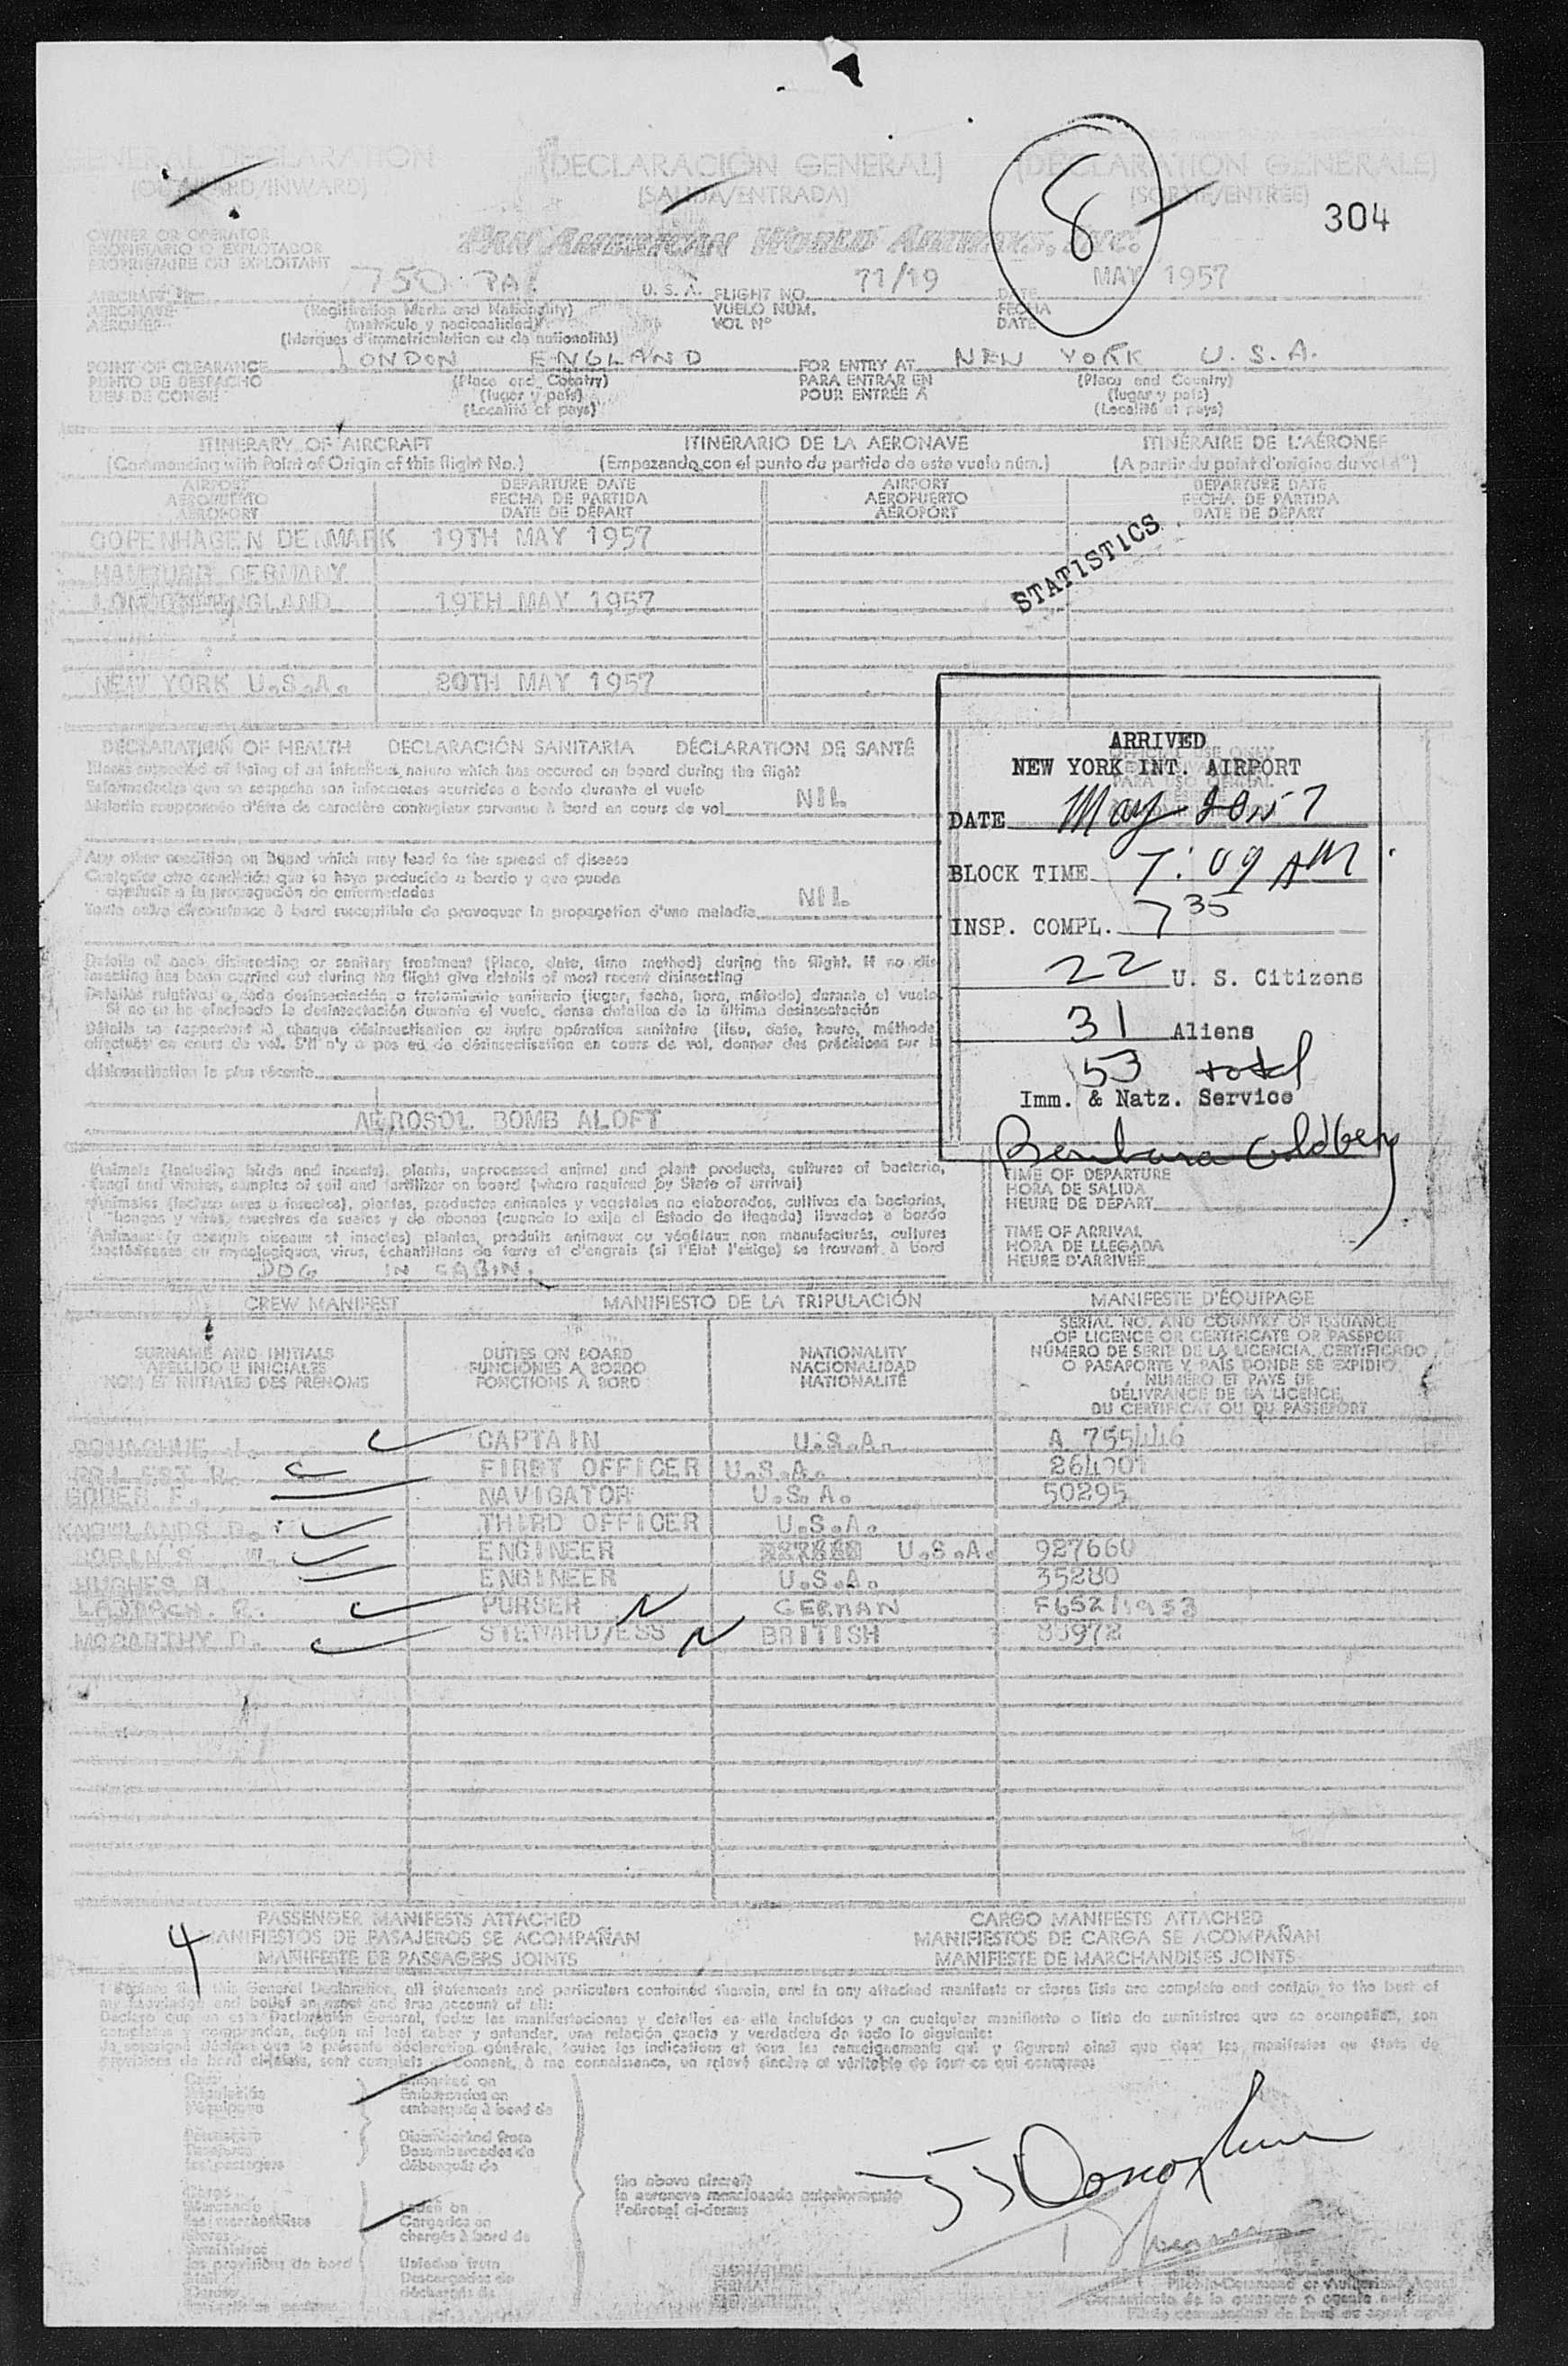 GENERAL DECLARATION (DECLARACIÓN GENERAL) (DÉCLARATION GÉNÉRALE)
(OUTWARD/INWARD) (SALIDA/ENTRADA) (SORTIE/ENTRÉE)
8
304
OWNER OR OPERATOR
PROPIETARIO O EXPLOTADOR
PROPRIÉTAIRE OU EXPLOITANT
PAN AMERICAN WORLD AIRWAYS, INC.
AIRCRAFT
AERONAVE
AÉRONEF
750 PA
U. S. A.
FLIGHT NO. 71/19
VUELO NUM.
VOL Nº
DATE MAY 1957
FECHA
DATE
(Registration Marks and Nationality)
(matrícula y nacionalidad)
(Marques d'immatriculation ou de nationalité)
POINT OF CLEARANCE LONDON ENGLAND FOR ENTRY AT NEW YORK U.S.A.
PUNTO DE DESPACHO (Place and Country) PARA ENTRAR EN (Place and Country)
LIEU DE CONGÉ (lugar y país) POUR ENTRÉE A (lugar y país)
(Localité et pays) (Localité et pays)
ITINERARY OF AIRCRAFT ITINERARIO DE LA AERONAVE ITINÉRAIRE DE L'AÉRONEF
(Commencing with Point of Origin of this flight No.) (Empezando con el punto du partida de este vuelo núm.) (A partir du point d'origine du vol Nº)
AIRPORT DEPARTURE DATE AIRPORT DEPARTURE DATE
AEROPUERTO FECHA DE PARTIDA AEROPUERTO FECHA DE PARTIDA
AÉROPORT DATE DE DÉPART AÉROPORT DATE DE DÉPART
COPENHAGEN DENMARK 19TH MAY 1957
HAMBURG GERMANY
LONDON ENGLAND 19TH MAY 1957
STATISTICS
NEW YORK U.S.A. 20TH MAY 1957
DECLARATION OF HEALTH DECLARACIÓN SANITARIA DÉCLARATION DE SANTÉ
Illness suspected of being of an infectious nature which has occured on board during the flight
Enfermedades que se sospecha son infecciosas ocurridas a bordo durante el vuelo
Maladie soupçonnée d'être de caractère contagieux survenue à bord en cours de vol NIL
Any other condition on board which may lead to the spread of disease
Cualquier otra condición que se haya producido a bordo y que pueda
conducir a la propagación de enfermedades
Toute autre circonstance à bord susceptible de provoquer la propagation d'une maladie NIL
Details of each disinsecting or sanitary treatment (Place, date, time method) during the flight. If no dis-
insecting has been carried out during the flight give details of most recent disinsecting
Detalles relativos a cada desinsectación o tratamiento sanitario (lugar, fecha, hora, método) durante el vuelo
Si no se ha efectuado la desinsectación durante el vuelo, dense detalles de la última desinsectación
Détails se rapportant à chaque désinsectisation ou autre opération sanitaire (lieu, date, heure, méthode)
effectuée en cours de vol. S'il n'y a pas eu de désinsectisation en cours de vol, donner des précisions sur la
désinsectisation la plus récente
AEROSOL BOMB ALOFT
ARRIVED
NEW YORK INT. AIRPORT
DATE May 20 57
BLOCK TIME 7:09 AM
INSP. COMPL. 7 35
22 U. S. Citizens
31 Aliens
53 total
Imm. & Natz. Service
Barbara Goldberg
Animals (including birds and insects), plants, unprocessed animal and plant products, cultures of bacteria,
fungi and viruses, samples of soil and fertilizer on board (where required by State of arrival)
Animales (incluso aves e insectos), plantas, productos animales y vegetales no elaborados, cultivos de bacterias,
hongos y virus, muestras de suelos y de abonos (cuando lo exija el Estado de llegada) llevados a bordo
Animaux (y compris oiseaux et insectes) plantes, produits animaux ou végétaux non manufacturés, cultures
bactériennes ou mycologiques, virus, échantillons de terre et d'engrais (si l'Etat l'exige) se trouvant à bord
DOG IN CABIN.
TIME OF DEPARTURE
HORA DE SALIDA
HEURE DE DÉPART
TIME OF ARRIVAL
HORA DE LLEGADA
HEURE D'ARRIVÉE
CREW MANIFEST MANIFIESTO DE LA TRIPULACIÓN MANIFESTE D'ÉQUIPAGE
SURNAME AND INITIALS
APELLIDO E INICIALES
NOM ET INITIALES DES PRÉNOMS
DUTIES ON BOARD
FUNCIONES A BORDO
FONCTIONS A BORD
NATIONALITY
NACIONALIDAD
NATIONALITÉ
SERIAL NO. AND COUNTRY OF ISSUANCE
OF LICENCE OR CERTIFICATE OR PASSPORT
NÚMERO DE SERIE DE LA LICENCIA, CERTIFICADO
O PASAPORTE Y PAÍS DONDE SE EXPIDIÓ
NUMÉRO ET PAYS DE
DÉLIVRANCE DE LA LICENCE,
DU CERTIFICAT OU DU PASSEPORT
DONAGHUE J. CAPTAIN U.S.A. A 755446
R. FIRST OFFICER U.S.A. 264701
F. NAVIGATOR U.S.A. 50295
KNOWLANDS D. THIRD OFFICER U.S.A.
W. ENGINEER U.S.A. 927660
HUGHES R. ENGINEER U.S.A. 35280
PURSER N GERMAN F652/1953
MCCARTHY D. STEWARD/ESS N BRITISH 83972
4
PASSENGER MANIFESTS ATTACHED CARGO MANIFESTS ATTACHED
MANIFIESTOS DE PASAJEROS SE ACOMPAÑAN MANIFIESTOS DE CARGA SE ACOMPAÑAN
MANIFESTE DE PASSAGERS JOINTS MANIFESTE DE MARCHANDISES JOINTS
I declare that this General Declaration, all statements and particulars contained therein, and in any attached manifests or stores lists are complete and contain to the best of
my knowledge and belief an exact and true account of all:
Declaro que en esta Declaración General, todas las manifestaciones y detalles en ella incluídos y en cualquier manifiesto o lista de suministros que se acompañan, son
completos y comprenden, según mi leal saber y entender, una relación exacta y verdadera de todo lo siguiente:
Embarked on
Embarcados en
embarqués à bord de
Disembarked from
Desembarcados de
débarqués de
Laden on
Cargados en
chargés à bord de
Unladen from
Descargados de
déchargés de
the above aircraft
la aeronave mencionada anteriormente
l'aéronef ci-dessus
les provisions de bord
SIGNATURE
FIRMA
Pilot-in-Command or Authorised Agent